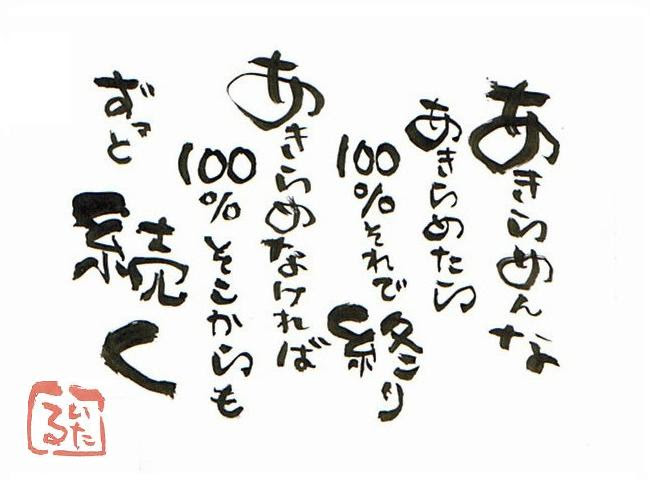 あきらめんな
あきらめたら
100%それで終り
あきらめなければ
100%そこからも
ずっと続く
いたる